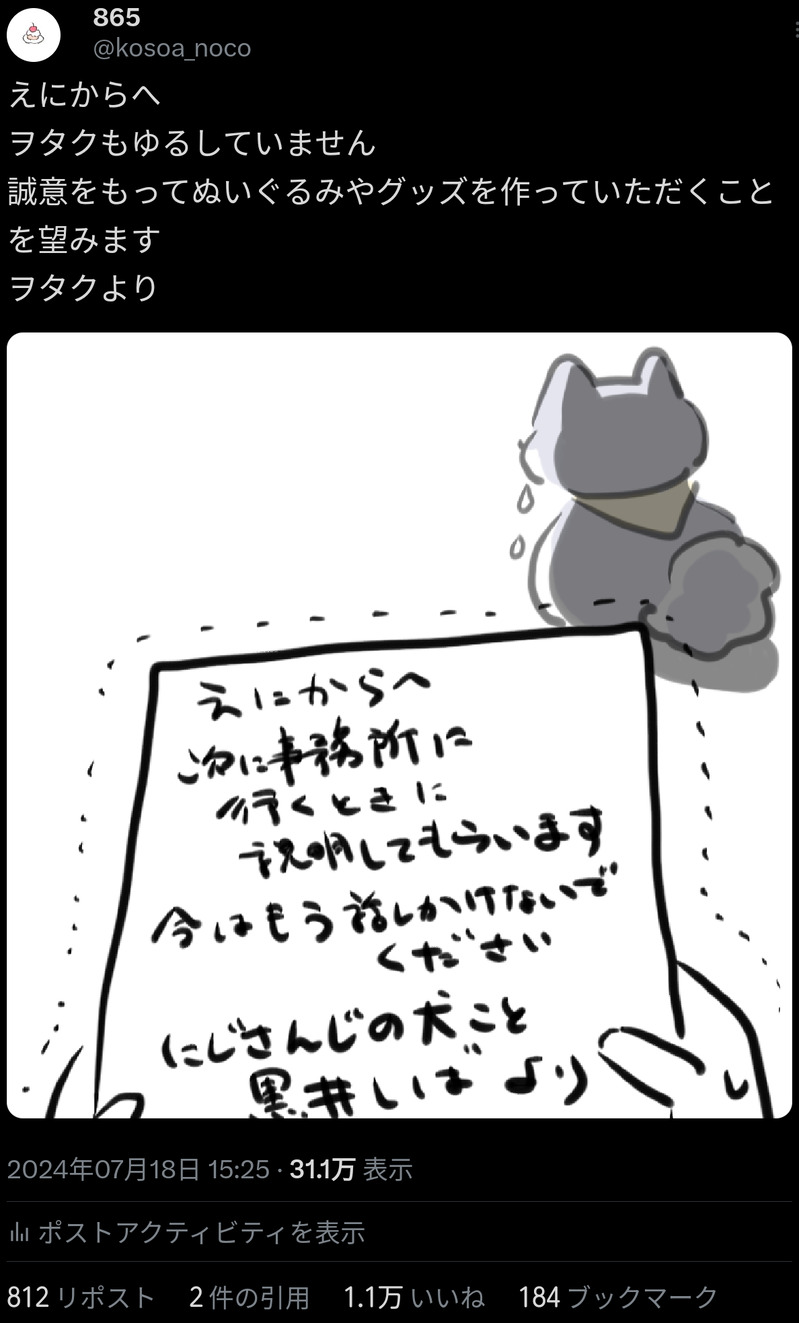 865
@kosoa_noco
えにからへ
ヲタクもゆるしていません
誠意をもってぬいぐるみやグッズを作っていただくこと
を望みます
ヲタクより
えにからへ
次に事務所に
行くときに
説明してもらいます
今はもう話しかけないで
ください
にじさんじの犬こと
黒井しば より
2024年07月18日 15:25 · 31.1万 表示
ポストアクティビティを表示
812 リポスト 2 件の引用 1.1万 いいね 184 ブックマーク